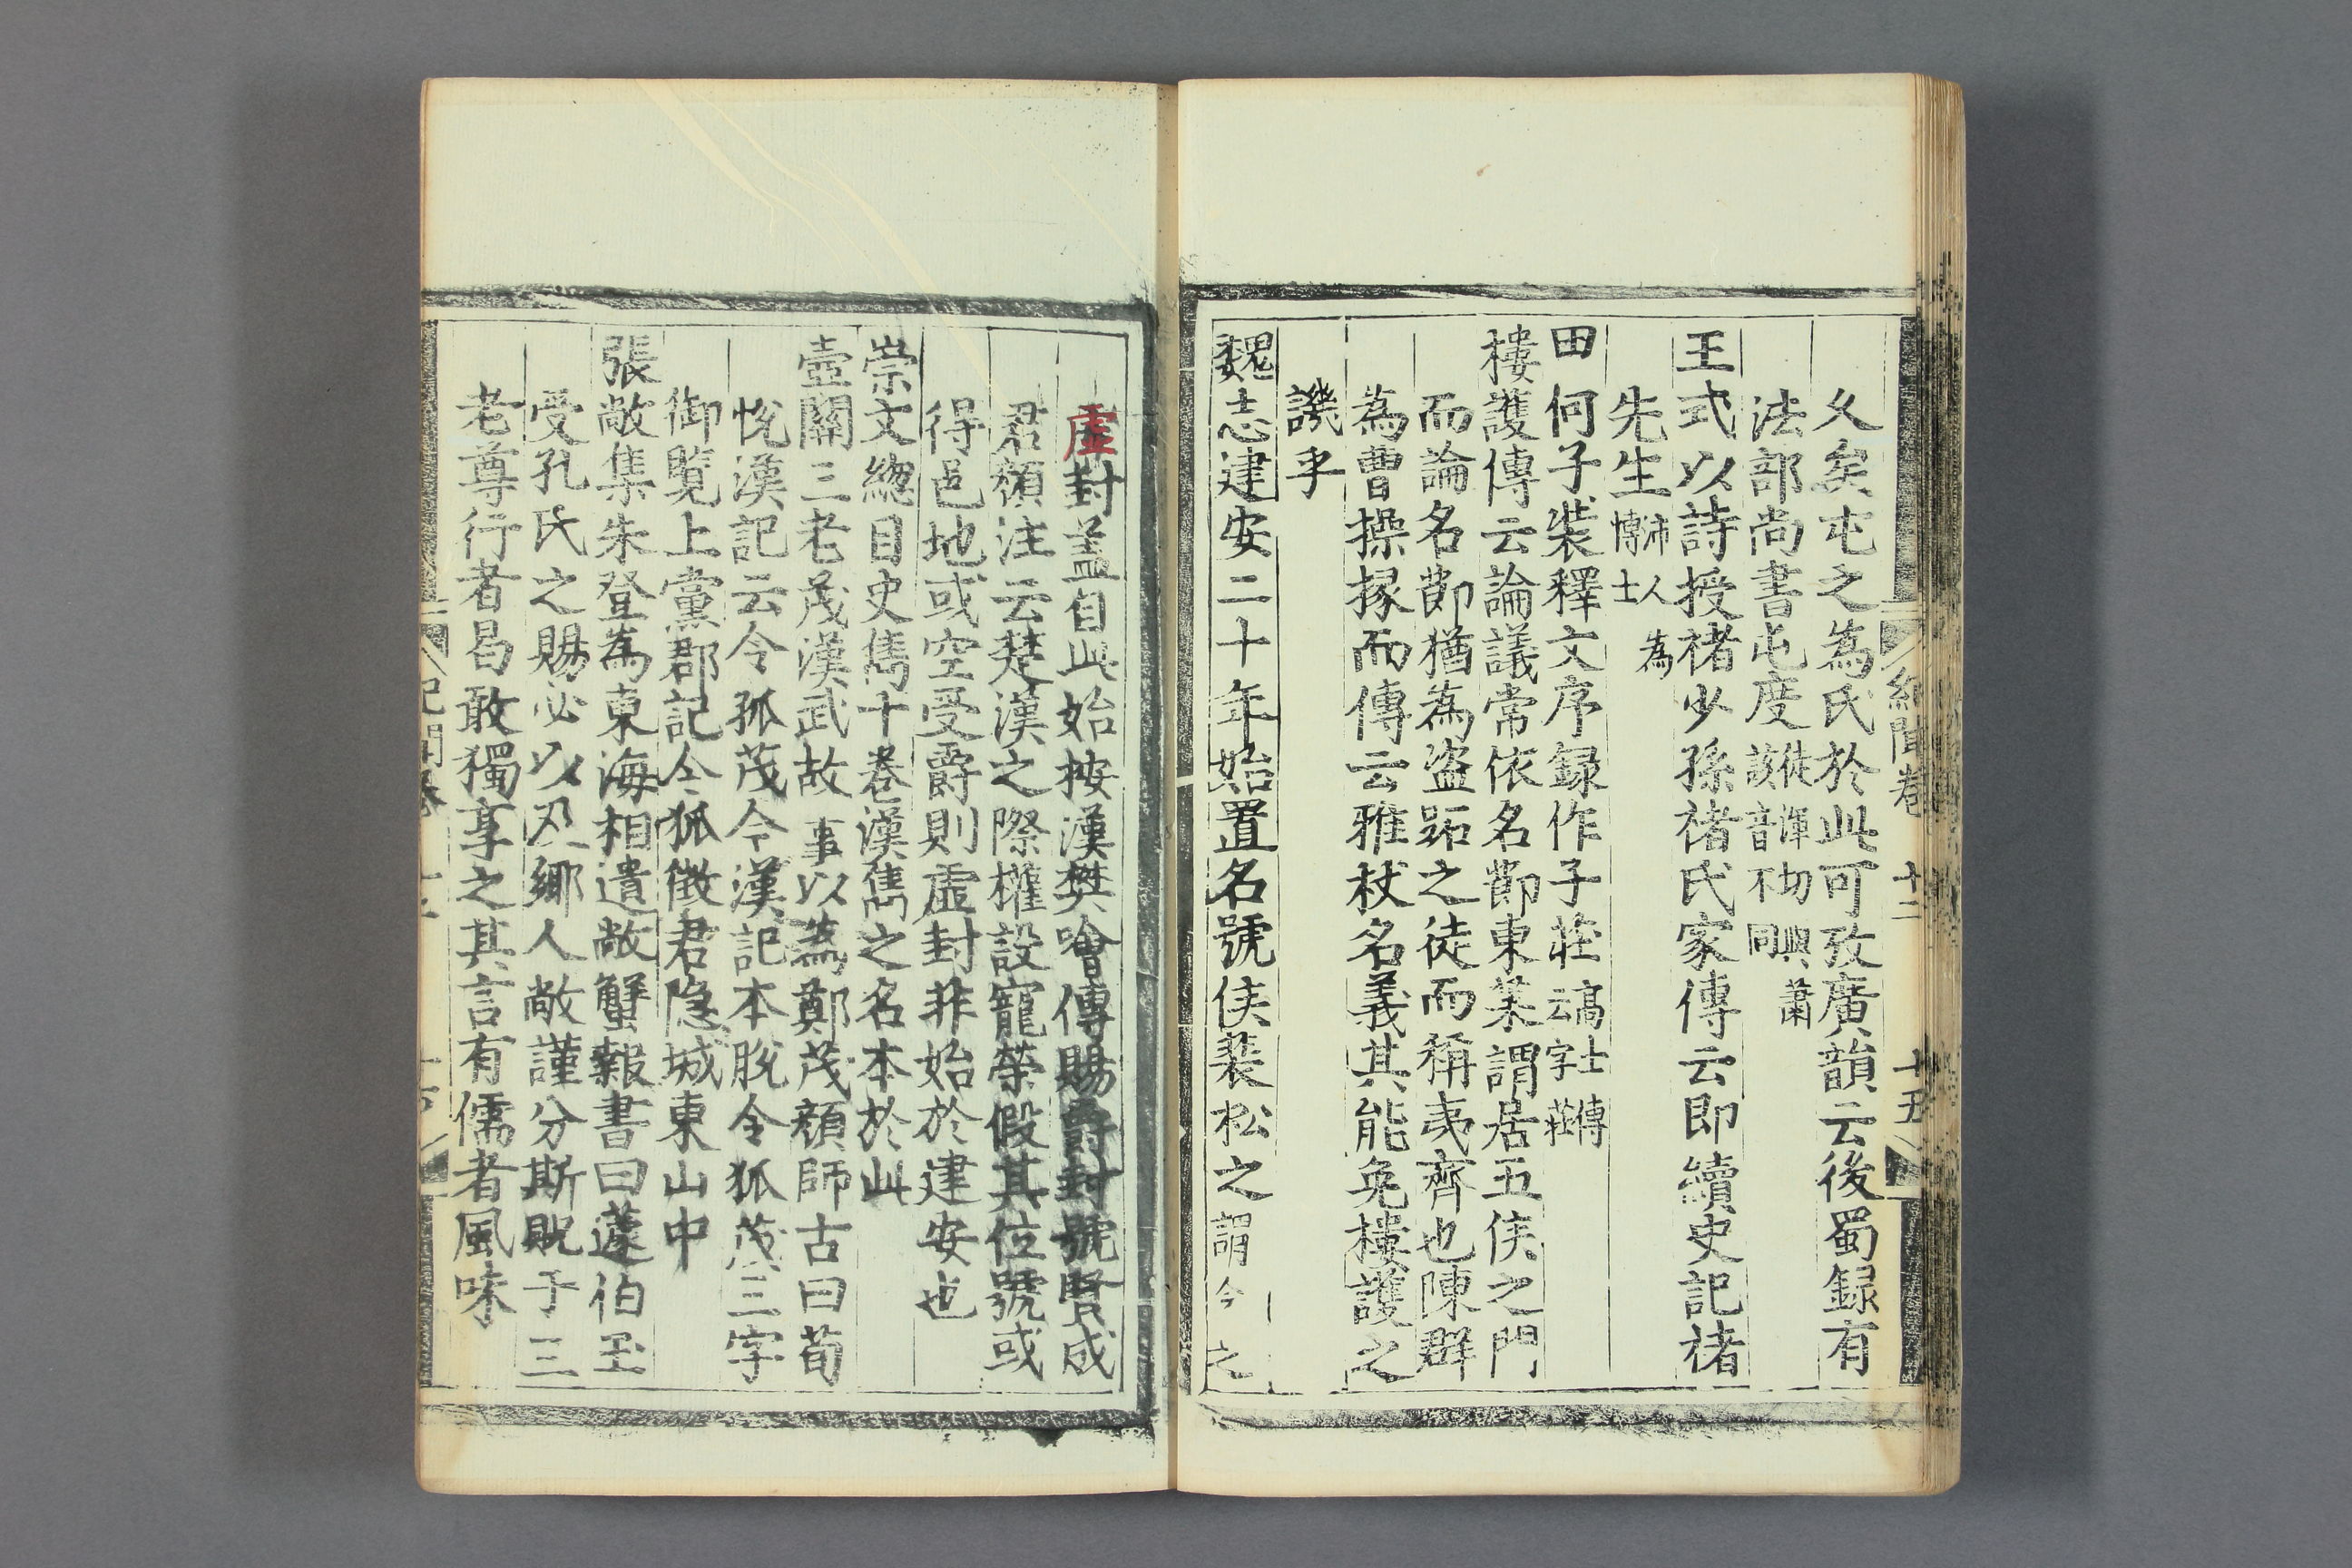 紀聞卷 十二 十五
久矣屯之為氏於此可攷廣韻云後蜀録有
法部尚書屯度徒渾切與蕭該音不同
王式以詩授褚少孫褚氏家傳云即續史記褚
先生沛人為博士
田何子裝釋文序録作子莊高士傳云字莊
樓護傳云論議常依名節東萊謂居五侯之門
而論名節猶為盜跖之徒而稱夷齊也陳群
為曹操掾而傳云雅杖名義其能免樓護之
譏乎
魏志建安二十年始置名號侯裴松之謂今之
虛封蓋自此始按漢樊噲傳賜爵封號賢成
君顏注云楚漢之際權設寵榮假其位號或
得邑地或空受爵則虛封非始於建安也
崇文緫目史雋十卷漢雋之名本於此
壺關三老茂漢武故事以為鄭茂顏師古曰荀
悅漢記云令狐茂今漢記本脫令狐茂三字
御覽上黨郡記令狐徵君隱城東山中
張敞集朱登為東海相遺敞蟹報書曰蘧伯玉
受孔氏之賜必以及鄉人敞謹分斯貺于三
老尊行者曷敢獨享之其言有儒者風味